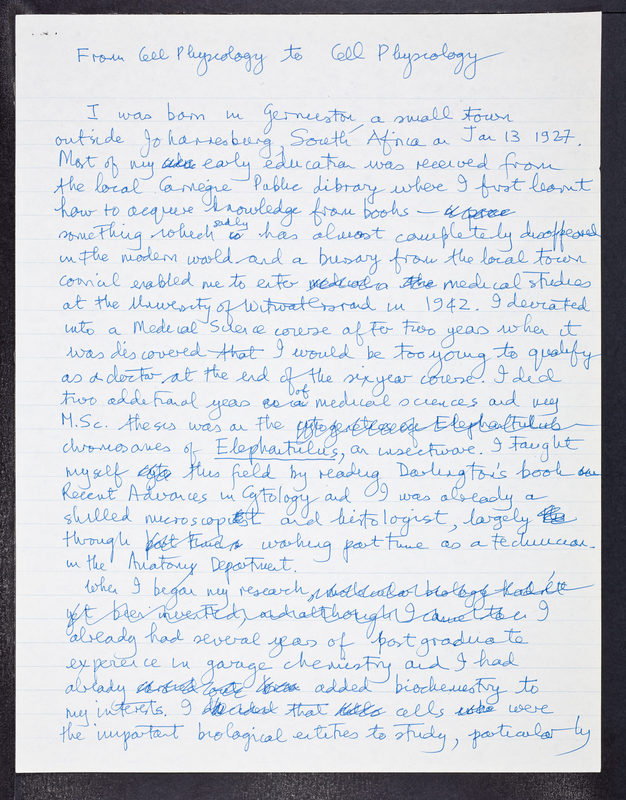 From Cell Physiology to Cell Physiology
I was born in Germiston, a small town
outside Johannesburg, South Africa on Jan 13 1927.
Most of my early education was received from
the local Carnegie Public Library where I first learnt
how to acquire knowledge from books –
something which sadly has almost completely disappeared
in the modern world and a bursary from the local town
council enabled me to enter medical studies
at the University of Witwatersrand in 1942. I deviated
into a Medical Science course after two years when it
was discovered that I would be too young to qualify
as a doctor at the end of the six year course. I did
two additional years of medical sciences and my
M.Sc. thesis was on the cytogenetics of Elephantulus
chromosomes of Elephantulus, an insectivore. I taught
myself this field by reading Darlington's book on
Recent Advances in Cytology and I was already a
skilled microscopist and histologist, largely
through part time working part time as a technician
in the Anatomy Department.
When I began my research, molecular biology hadn't
yet been invented, and although I came to it I
already had several years of post graduate
experience in garage chemistry and I had
already added biochemistry to
my interests. I decided that cells were
the important biological entities to study, particularly